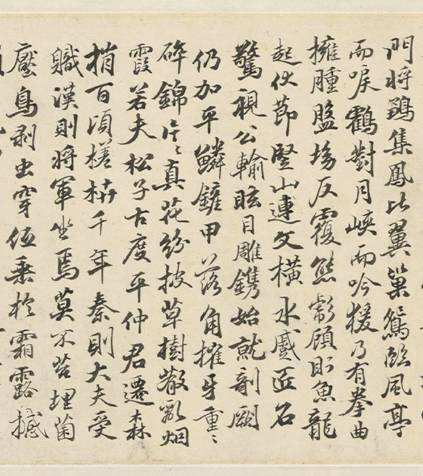 門將鶵集鳳比翼巢鴛臨風亭
而唳鶴對月峽而吟猨乃有拳曲
擁腫盤坳反覆熊彪顧盼魚龍
起伏節竪山連文橫水蹙匠石
驚視公輸眩目雕鐫始就剞劂
仍加平鱗鏟甲落角摧牙重〻
碎錦片〻真花紛披草樹散亂烟
霞若夫松子古度平仲君遷森
梢百頃槎枿千年秦則大夫受
職漢則將軍坐焉莫不苔埋菌
壓鳥剥虫穿低垂於霜露撼